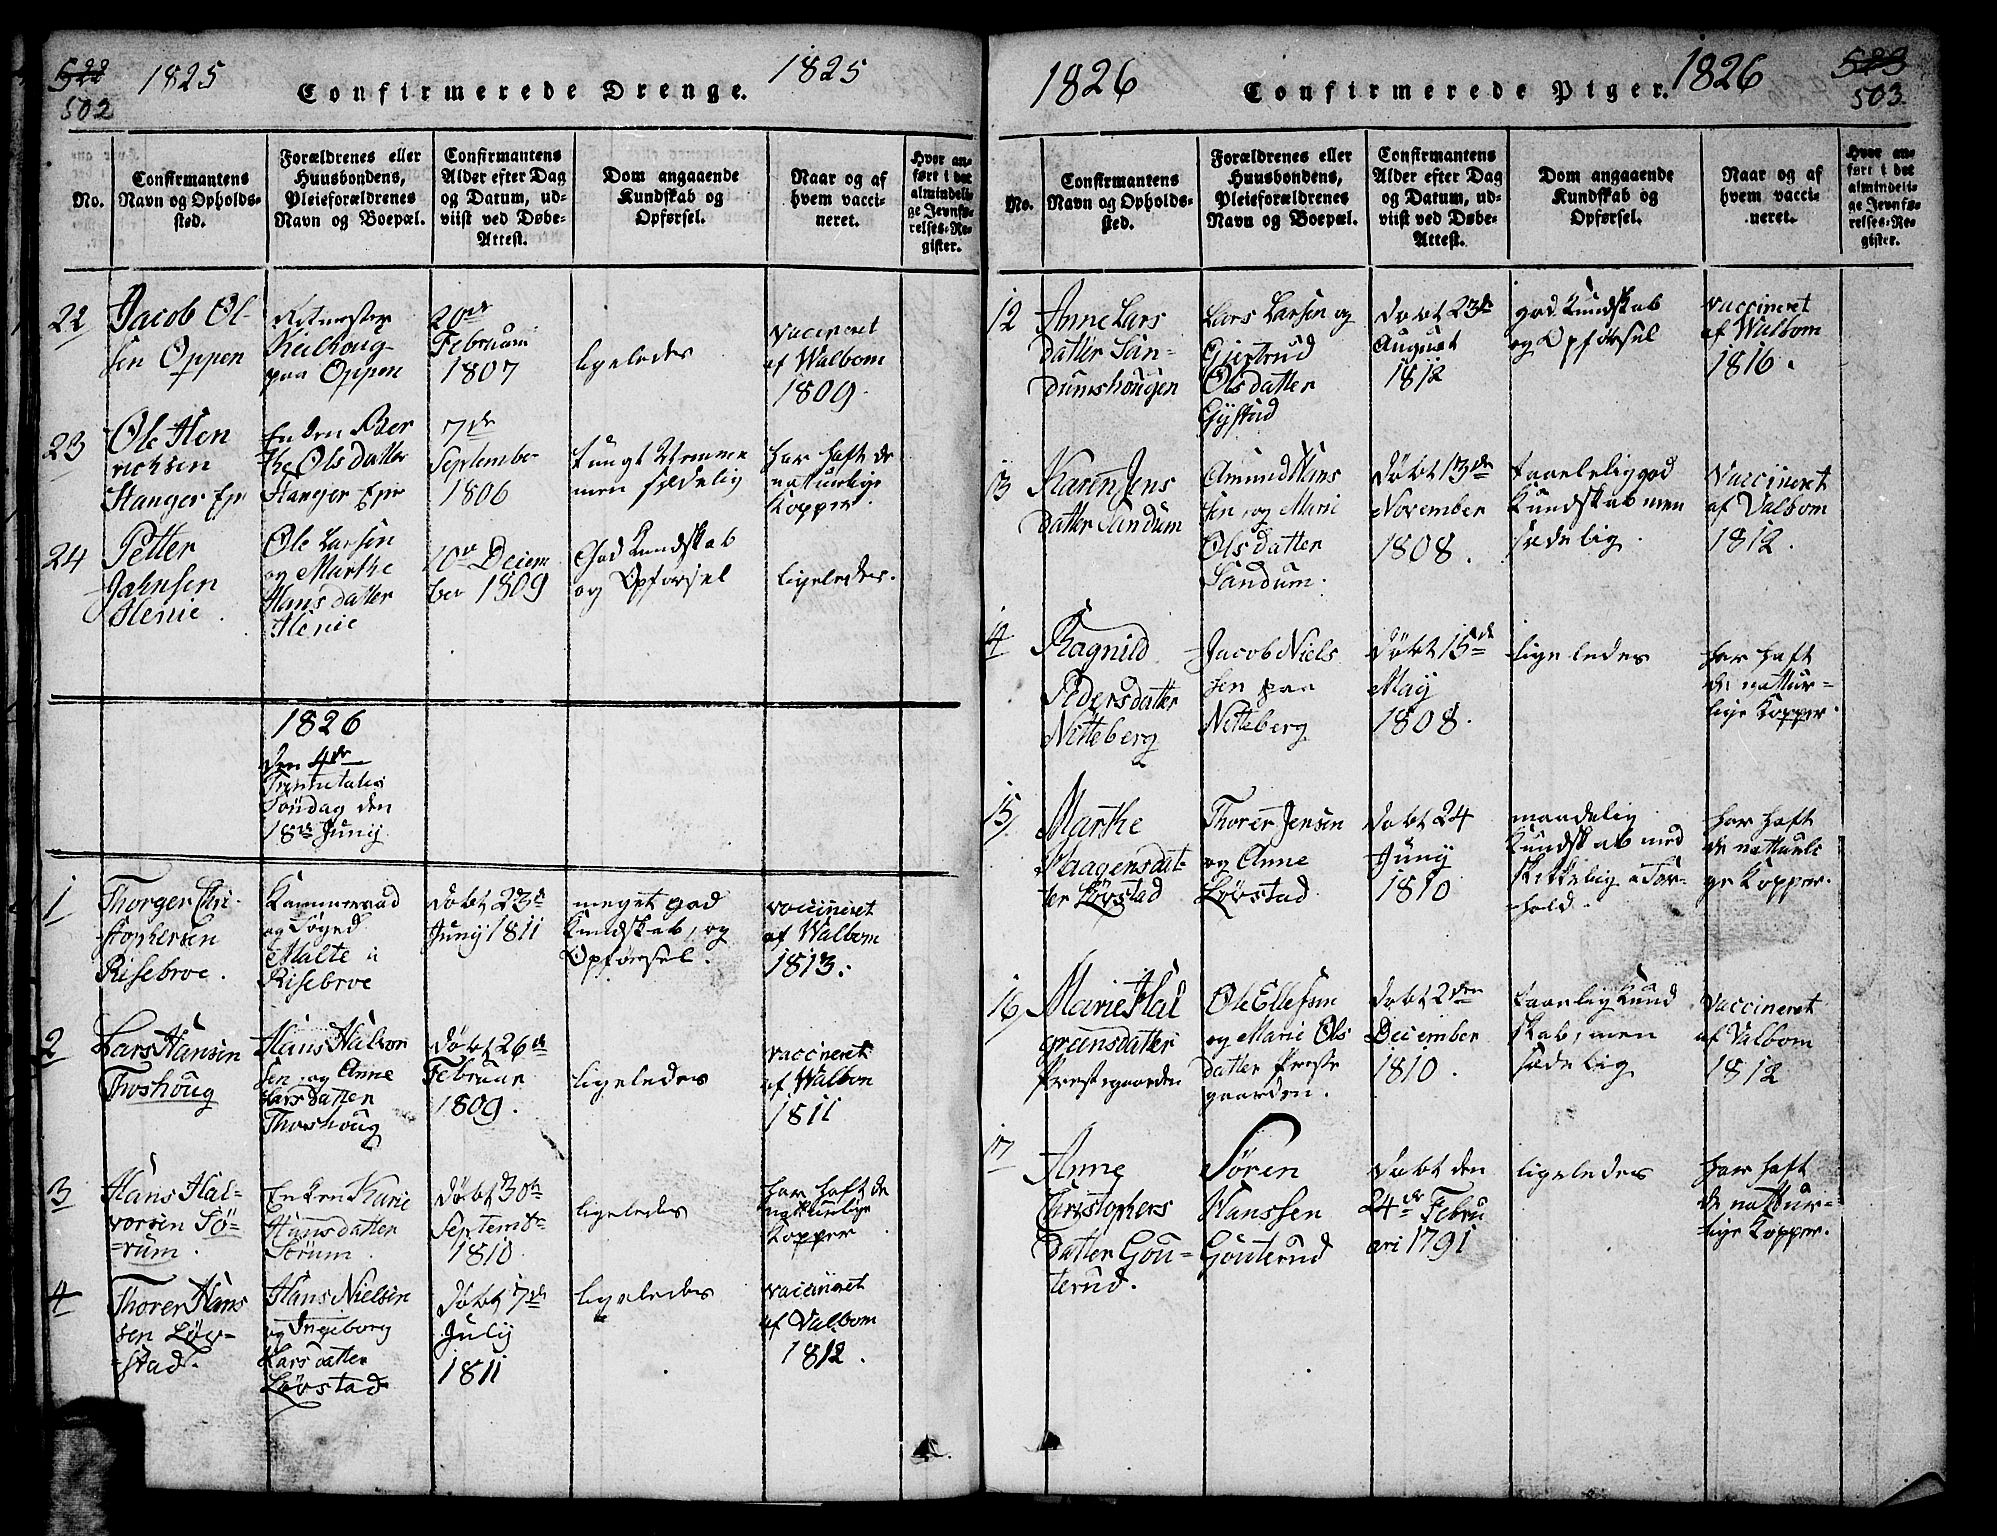 522
502
1825
Confirmerede Drenge.
1825
No.
Confirmantens
Navn og Opholds-
sted.
Forældrenes eller
Huusbondens,
Pleieforældrenes
Navn og Boepæl.
Confirmantens
Alder efter Dag
og Datum, ud-
viist ved Døbe-
Attest.
Dom angaaende
Kundskab og
Opførsel.
Naar og af
hvem vacci-
neret.
Hvor an-
ført i det
almindeli-
ge Jevnfø-
relses-Re-
gister.
22
Jacob Ol-
sen Oppen
Ritmester
paa Oppen
20de
Februarii
1807
ligeledes
vaccineret
af Walbom
1809.
23
Ole Hen
richsen
Stanger Eje
Enken Ber
the Olsdatter
Stanger Eje
7de
Septembe
1806
tungt Nemme
men sædelig
har haft de
naturlige
Kopper.
24
Petter
Jahnsen
Henie.
Ole Larsen
og Marthe
Hansdatter
Henie
10de Decem
ber 1809
God Kundskab
og Opførsel
ligeledes.
1826
den 4de
Trinitatis
Søndag den
18de Junij.
1
Thorger Chri-
stophersen
Risebroe.
Kammerraad
og Foged
Malte i
Risebroe
døbt 23de
Junij 1811
meget god
Kundskab, og
Opførsel.
vaccineret
af Walbom
1813.
2
Lars Hansen
Thoshoug
Hans Halvor
sen, og Anne
Larsdatter
Thoshoug
døbt 26de
Februar
1809.
ligeledes
vaccineret
af Walbom
1811
3
Hans Hal-
vorsen Sö-
rum.
Enken Karie
Hansdatter
Sörum.
døbt 30te
Septembr
1810.
ligeledes
har haft de
naturlige
Kopper
4
Thorer Hans
sen Løv-
stad.
Hans Nielsen
og Ingeborg
Larsdatter
Løvstad
døbt 7de
July
1811
ligeledes
vaccineret
af Valbom
1812.
1826
Confirmerede Piger.
1826
523
503.
No.
Confirmantens
Navn og Opholds-
sted.
Forældrenes eller
Huusbondens,
Pleieforældrenes
Navn og Boepæl.
Confirmantens
Alder efter Dag
og Datum, ud-
viist ved Døbe-
Attest.
Dom angaaende
Kundskab og
Opførsel.
Naar og af
hvem vacci-
neret.
Hvor an-
ført i det
almindeli-
ge Jevnfø-
relses-Re-
gister.
12
Anne Lars
datter San-
dumshougen
Lars Larsen og
Gjertrud
Olsdatter
Gystad
døbt 23de
August
1812
god Kundskab
og Opførsel
vaccineret
af Walbom
1816.
13
Karen Jens
datter Sandum
Amund Hans
sen, og Marie
Olsdatter
Sandum.
døbt 13de
November
1808.
taalelig god
Kundskab men
sædelig.
vaccineret
af Valbom
1812.
14
Ragnild
Pedersdatter
Nitteberg
Jacob Niels
sen paa
Nitteberg
døbt 15de
May
1808.
ligeledes
har haft
de nattur-
lige Kopper.
15
Marthe
Haagensdat-
ter Løvstad
Thorer Jensen
og Anne
Løvstad
døbt 24
Juny
1810
maadelig
Kundskab med
skikkelig For-
hold.
har haft
de natturli
ge Kopper.
16
Marie Hal
gremsdatter
Præstegaarden
Ole Ellefsen
og Marie Ols
datter Præste
gaarden.
døbt 2den
December
1810.
taalelig Kund
skab, men
sædelig
vaccineret
af Valbom
1812
17
Anne
Christophers
datter Gou-
terud.
Søren
Hanssen
Gouterud
døbt den
24de Febru
ari 1791
ligeledes
har haft
de nattur-
lige Kopper.